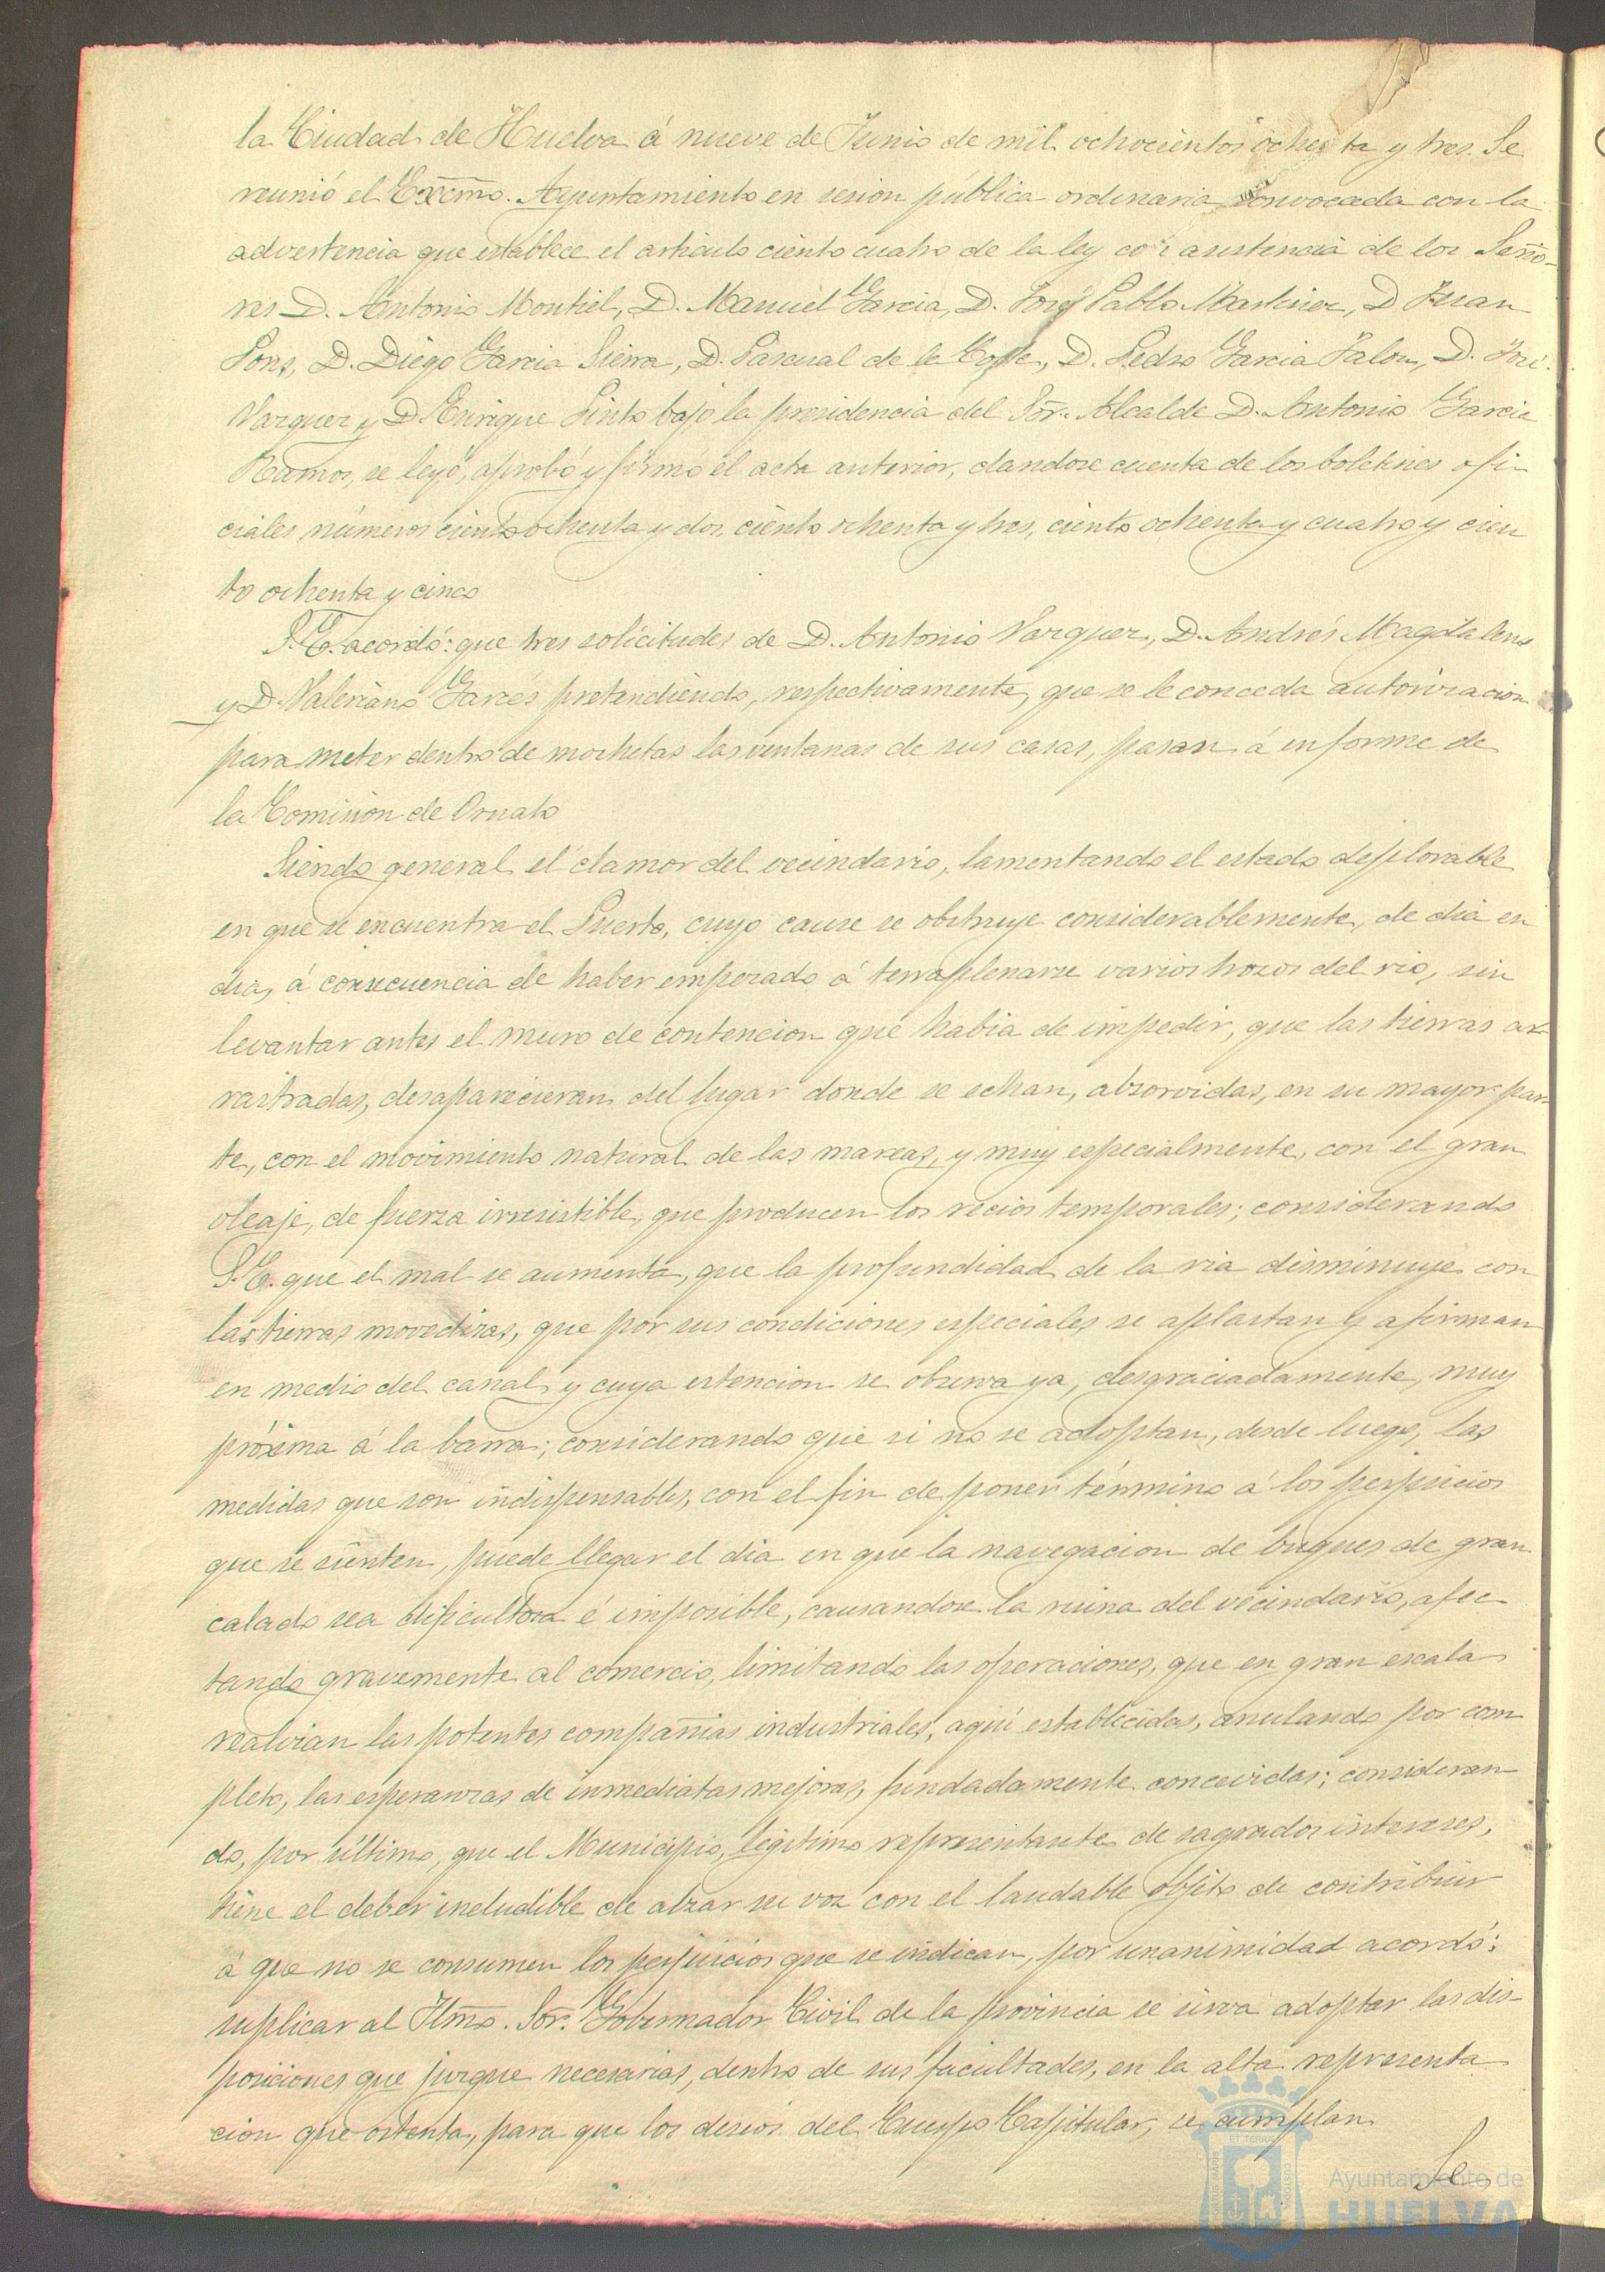 la Ciudad de Huelva á nueve de Junio de mil ochocientos ochenta y tres. Se
reunió el Excmo. Ayuntamiento en sesion pública ordinaria convocada con la
advertencia que establece el artículo ciento cuatro de la ley con asistencia de los Seño-
res D. Antonio Montiel, D. Manuel Garcia, D. José Pablo Martinez, D Juan
Pons, D. Diego Garcia Sierra, D. Pascual de la Corte, D. Pedro Garcia Jalon, D. José
Vazquez y D. Enrique Pinto bajo la presidencia del Sor. Alcalde D. Antonio Garcia
Ramos, se leyó, aprobó y firmó el acta anterior, dandose cuenta de los boletines ofi-
ciales números ciento ochenta y dos, ciento ochenta y tres, ciento ochenta y cuatro y cien
to ochenta y cinco
S. E. acordó: que tres solicitudes de D. Antonio Vazquez, D. Andrés Magdalena
y D. Valeriano Garcés pretendiendo, respectivamente, que se le conceda autorizacion
para meter dentro de mochetas las ventanas de sus casas, pasan á informe de
la Comision de Ornato
Siendo general el clamor del vecindario, lamentando el estado deplorable
en que se encuentra el Puerto, cuyo cauce se obstruye considerablemente, de dia en
dia, á consecuencia de haber empezado á terraplenarse varios trozos del rio, sin
levantar antes el muro de contencion que habia de impedir, que las tierras ar-
rastradas, desaparecieran del lugar donde se echan, absorvidas, en su mayor par-
te, con el movimiento natural de las mareas, y muy especialmente, con el gran
oleaje, de fuerza irresistible, que producen los recios temporales; considerando
S. E. que el mal se aumenta, que la profundidad de la ria disminuye con
las tierras movedizas, que por sus condiciones especiales se aplastan y afirman
en medio del canal y cuya estencion se observa ya, desgraciadamente, muy
próxima á la barra; considerando que si no se adoptan, desde luego, las
medidas que son indispensables, con el fin de poner término á los perjuicios
que se sienten, puede llegar el dia en que la navegacion de buques de gran
calado sea dificultosa é imposible, causandose la ruina del vecindario, afec-
tando gravemente al comercio, limitando las operaciones, que en gran escala
realizan las potentes compañias industriales, aquí establecidas, anulando por com
pleto, las esperanzas de inmediatas mejoras, fundadamente concevidas; consideran-
do, por último, que el Municipio, legítimo representante de sagrados intereses,
tiene el deber ineludible de alzar su voz con el laudable objeto de contribuir
á que no se consumen los perjuicios que se indican, por unanimidad acordó:
suplicar al Iltmo. Sor. Gobernador Civil de la provincia se sirva adoptar las dis-
posiciones que juzgue necesarias, dentro de sus facultades, en la alta representa
cion que ostenta, para que los deseos del Cuerpo Capitular, se cumplan
Se
Ayuntamiento de
HUELVA